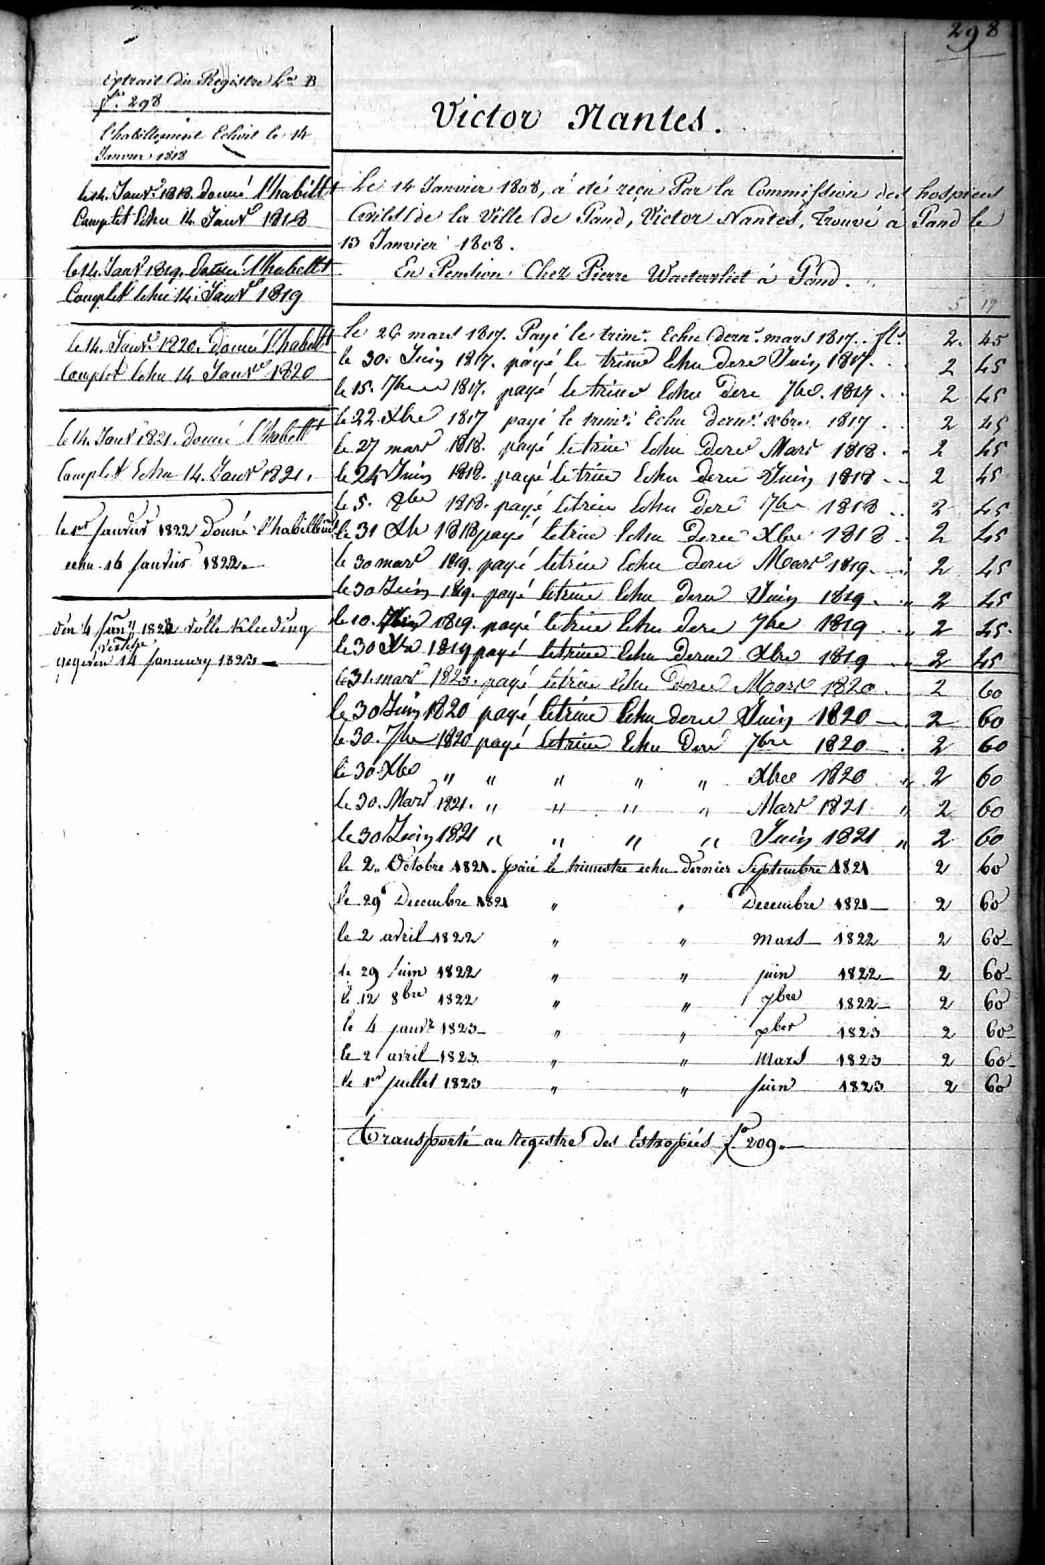 298
Extrait du Registre Lre B
fo. 298
l'habillement Echoit le 14
Janvier 1818
le 14. Janvr. 1818. donné l'habillt
Complet Echu 14 Janvr 1818
le 14. Janvr 1819. donné l'habillt
Complet Echu 14. Janvr 1819
le 14. Janvr. 1820. donné l'habillt
Complet Echu 14 Janvr 1820
le 14. Janvr 1821. donné l'habillt
Complet Echu 14. Janvr 1821.
le 1er janvier 1822 donné l'habillemt
echu 16 janvier 1822.
den 4 jany 1823 volle kleeding
gegeven 14 January 1823
Victor Nantes.
Le 14 Janvier 1808, a été reçu Par la Commission des hospices
Civils de la Ville de Gand, Victor Nantes, Trouvé a Gand le
13 Janvier 1808.
En Pension Chez Pierre Waetervliet á Gand.
5 19
le 26 mars 1817. Payé le trimr. Echu dernr. mars 1817. fls. 2. 45
le 30. Juin 1817. payé le trime Echu dere Juin 1817. 2 45
le 15. 7bre 1817. payé le trime Echu dere 7bre. 1817 2 45
le 22 Xbre 1817 payé le trimr. Echu dernr. xbre 1817 2 45
le 27 mars 1818. payé letrime Echu dere Mars 1818. 2 45
le 24 Juin 1818. payé letrime Echu dere Juin 1818 2 45
le 5. 8bre 1818. payé letrime Echu dere 7bre 1818 2 45
le 31 Xbr 1818 payé letrime Echu dere Xbre 1818 2 45
le 30 mars 1819. payé letrime Echu dere Mars 1819. 2 45
le 30 Juin 1819. payé letrime Echu dere Juin 1819 " 2 45
le 10. 1819. payé letrime Echu dere 7bre 1819 " 2 45.
le 30 Xbre 1819 payé letrime Echu dere Xbre 1819 2 45
le 31. mars 1820. payé letrime Echu dere Mars 1820. 2 60
le 30 Juin 1820 payé letrime Echu dere Juin 1820 2 60
le 30. 7bre 1820 payé letrime Echu dere 7bre 1820 2 60
le 30 Xbre " " " " " Xbre 1820 " 2 60
le 30. Mars 1821. " " " " Mars 1821 " 2 60
le 30 Juin 1821 " " " " Juin 1821 " 2 60
le 2. Octobre 1821. paié le trimestre echu dernier Septembre 1821 2 60
le 29 Decembre 1821 " " Decembre 1821 2 60
le 2 avril 1822 " " mars 1822 2 60
le 29 juin 1822 " " juin 1822 2 60
le 12 8bre 1822 " " 7bre 1822 2 60
le 4 janvr 1823 " " xber 1823 2 60
le 2 avril 1823 " " Mars 1823 2 60
le 1er juillet 1823 " " juin 1823 2 60
Transporté au Registre des Estropiés fo 209.